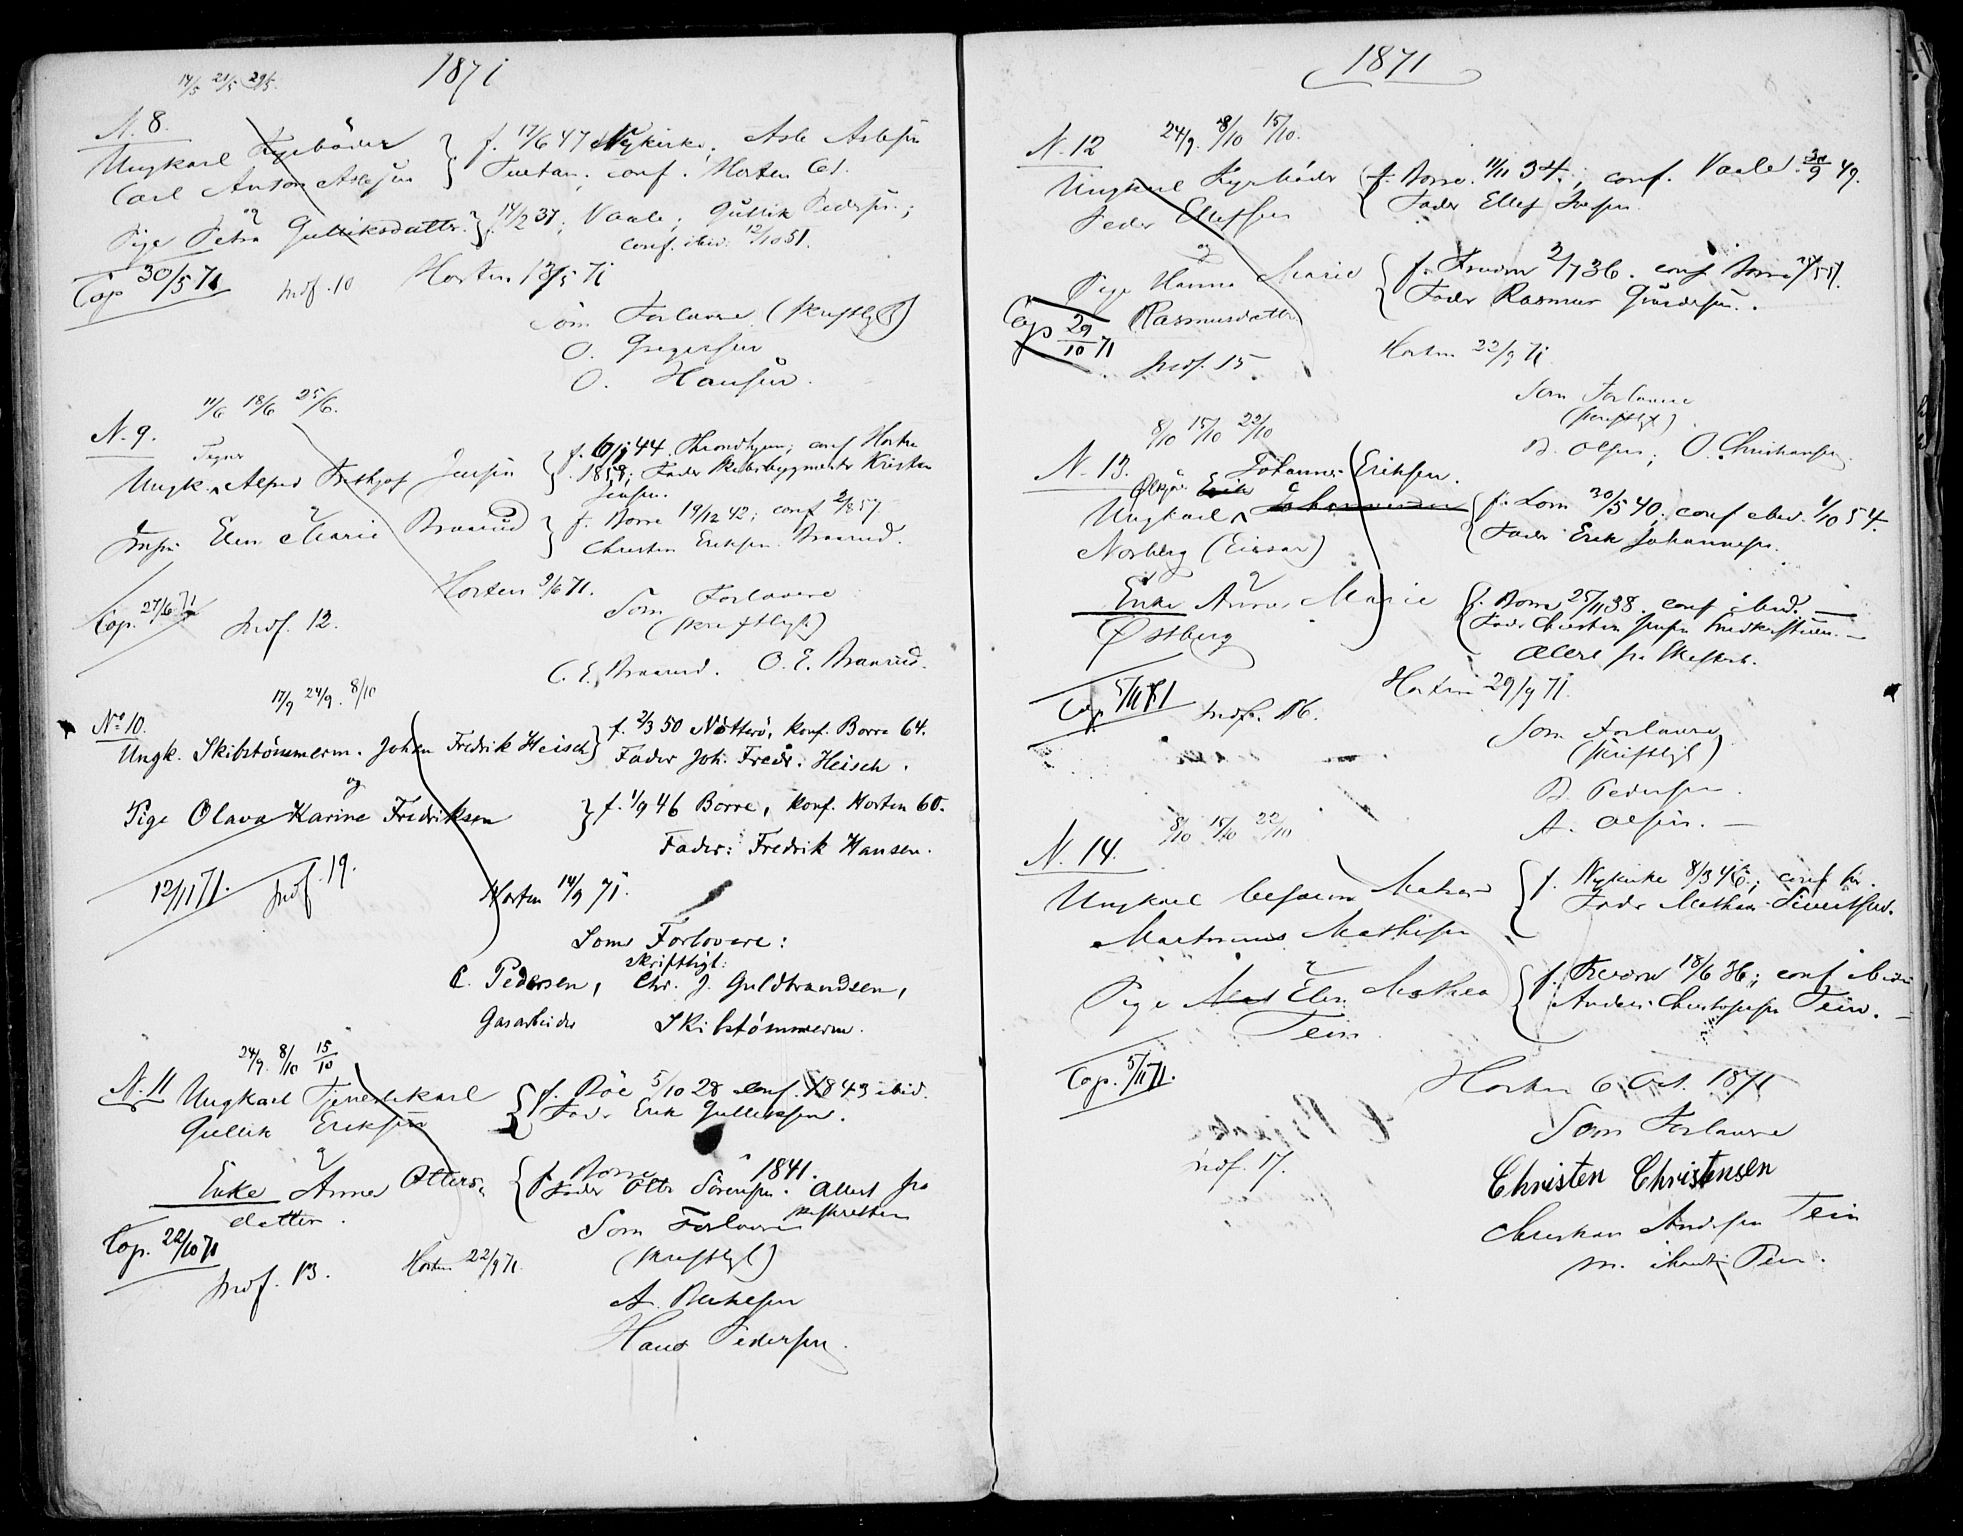 1871
14/5 21/5 29/5.
N. 8.
Ungkarl Fyrböder
Carl Anton Aslesen
f. 17/6 47 Nykirke; Asle Aslesen
conf. Horten 61.
og
Pige Petra Gulliksdatter.
f. 14/2 37; Vaale; Gullik Pedersen;
conf. ibid. 12/10 51.
Cop 30/5 71
Indf. 10
Horten 13/5 71
Som Forlovere (skriftligt)
O. Gregersen
O. Hansen.
11/6 18/6 25/6.
N. 9.
Ungk. Alfred Frithjof Jensen
f. 6/1 44. Throndhjem; conf Horten
1858; Fader Skibsbygmester Kristen
Jensen.
og
Elen Marie Braarud
f. Borre 19/12 42; conf 2/8 57
Christen Eriksen Braarud.
Horten 9/6 71.
Cop. 27/6 71
Indf. 12.
Som Forlovere
(skriftligt)
C. E. Braarud. O. E. Braarud.
17/9 24/9. 8/10
No 10.
Ungk. Skibstömmerm. Johan Fredrik Heisch
f. 2/3 50 Nötterö, konf. Borre 64.
Fader Joh. Fredr. Heisch.
og
Pige Olava Karine Fredriksen
f. 1/9 46 Borre, konf. Horten 60.
Fader: Fredrik Hansen.
12/11 71.
Indf. 19.
Horten 14/9 71.
Som Forlovere:
skriftligt:
C. Pedersen, Chr. J. Guldbrandsen,
Gasarbeider Skibstömmerm.
24/9. 8/10 15/10
N. 11 Ungkarl Tjenestekarl
Gullik Eriksen
f. 5/10 28 conf. 1843 ibid.
Fader Erik Gulliksen.
og
Enke Anne Otters-
datter.
f. Borre 1841.
Fader Otto Sörensen. Attest fra
Skifteretten
Som Forlovere
(skriftligt)
Cop. 22/10 71
Indf. 13.
Horten 22/9 71.
A. Berthesen
Hans Pedersen.
1871
24/9. 8/10 15/10.
N. 12
Ungkarl Fyrböder
Peder Ellefsen
f. Borre. 11/11 34.; conf. Vaale. 30/9 49.
Fader Ellef Ivesen.
og
Pige Hanna Marie
Rasmusdatter
f. 2/7 36. conf Borre
Fader Rasmus
Cop 29/10 71
Indf. 15
Horten 22/9 71.
Som Forlovere
(skriftligt)
B. Olsen; O. Christiansen.
8/10 15/10 22/10
N. 13.
Johannes Eriksen.
Ungkarl Erik Johannesen
Norberg (Eissar)
f. Lom 30/5 40; conf ibid. 1/10 54.
Fader Erik Johannesen.
og
Enke Anne Marie
Östberg
f. Borre 25/11 38. conf ibid. —
Attest fra Skifteret.
Cop. 5/11 71
Indf. 16.
Horten 29/9 71.
Som Forlovere
(skriftligt)
B. Pedersen.
A. Olsen. —
8/10 15/10 22/10
N. 14.
Ungkarl
Martinius Mathisen
f. Nykirke 8/3 46; conf
Fader Mathias Sivertsen.
og
Pige Elen Mathea
Tein
f. 18/6 36; conf ibid.
Anders Christophersen Tein. —
Cop. 5/11 71.
Indf. 17.
Horten 6 Oct. 1871
Som Forlovere
Christen Christensen
Christian Andersen Tein
Tein.